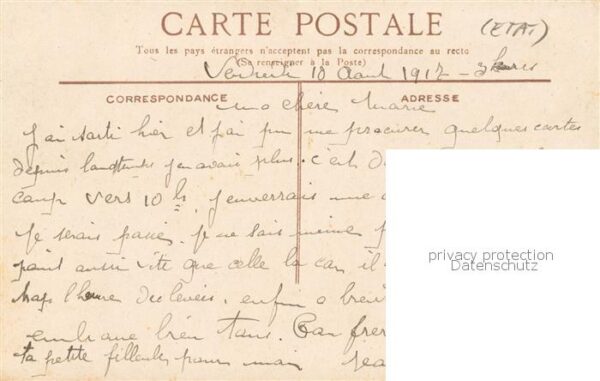 CARTE POSTALE (ETAT)
Tous les pays étrangers n'acceptent pas la correspondance au recto
(Se renseigner à la Poste)
10 Aout 1917 - 3 heures
CORRESPONDANCE ADRESSE
ma chère Marie
J'ai sorti hier et j'ai pu me procurer quelques cartes
depuis longtemps j'en avais plus. c'est
camp vers 10 h j'enverrais une
je serais passé. je ne sais même
point aussi vite que celle la car il
l'heure des levées. enfin
embrasse bien Ton frere
ta petite filleule pour moi
privacy protection
Datenschutz